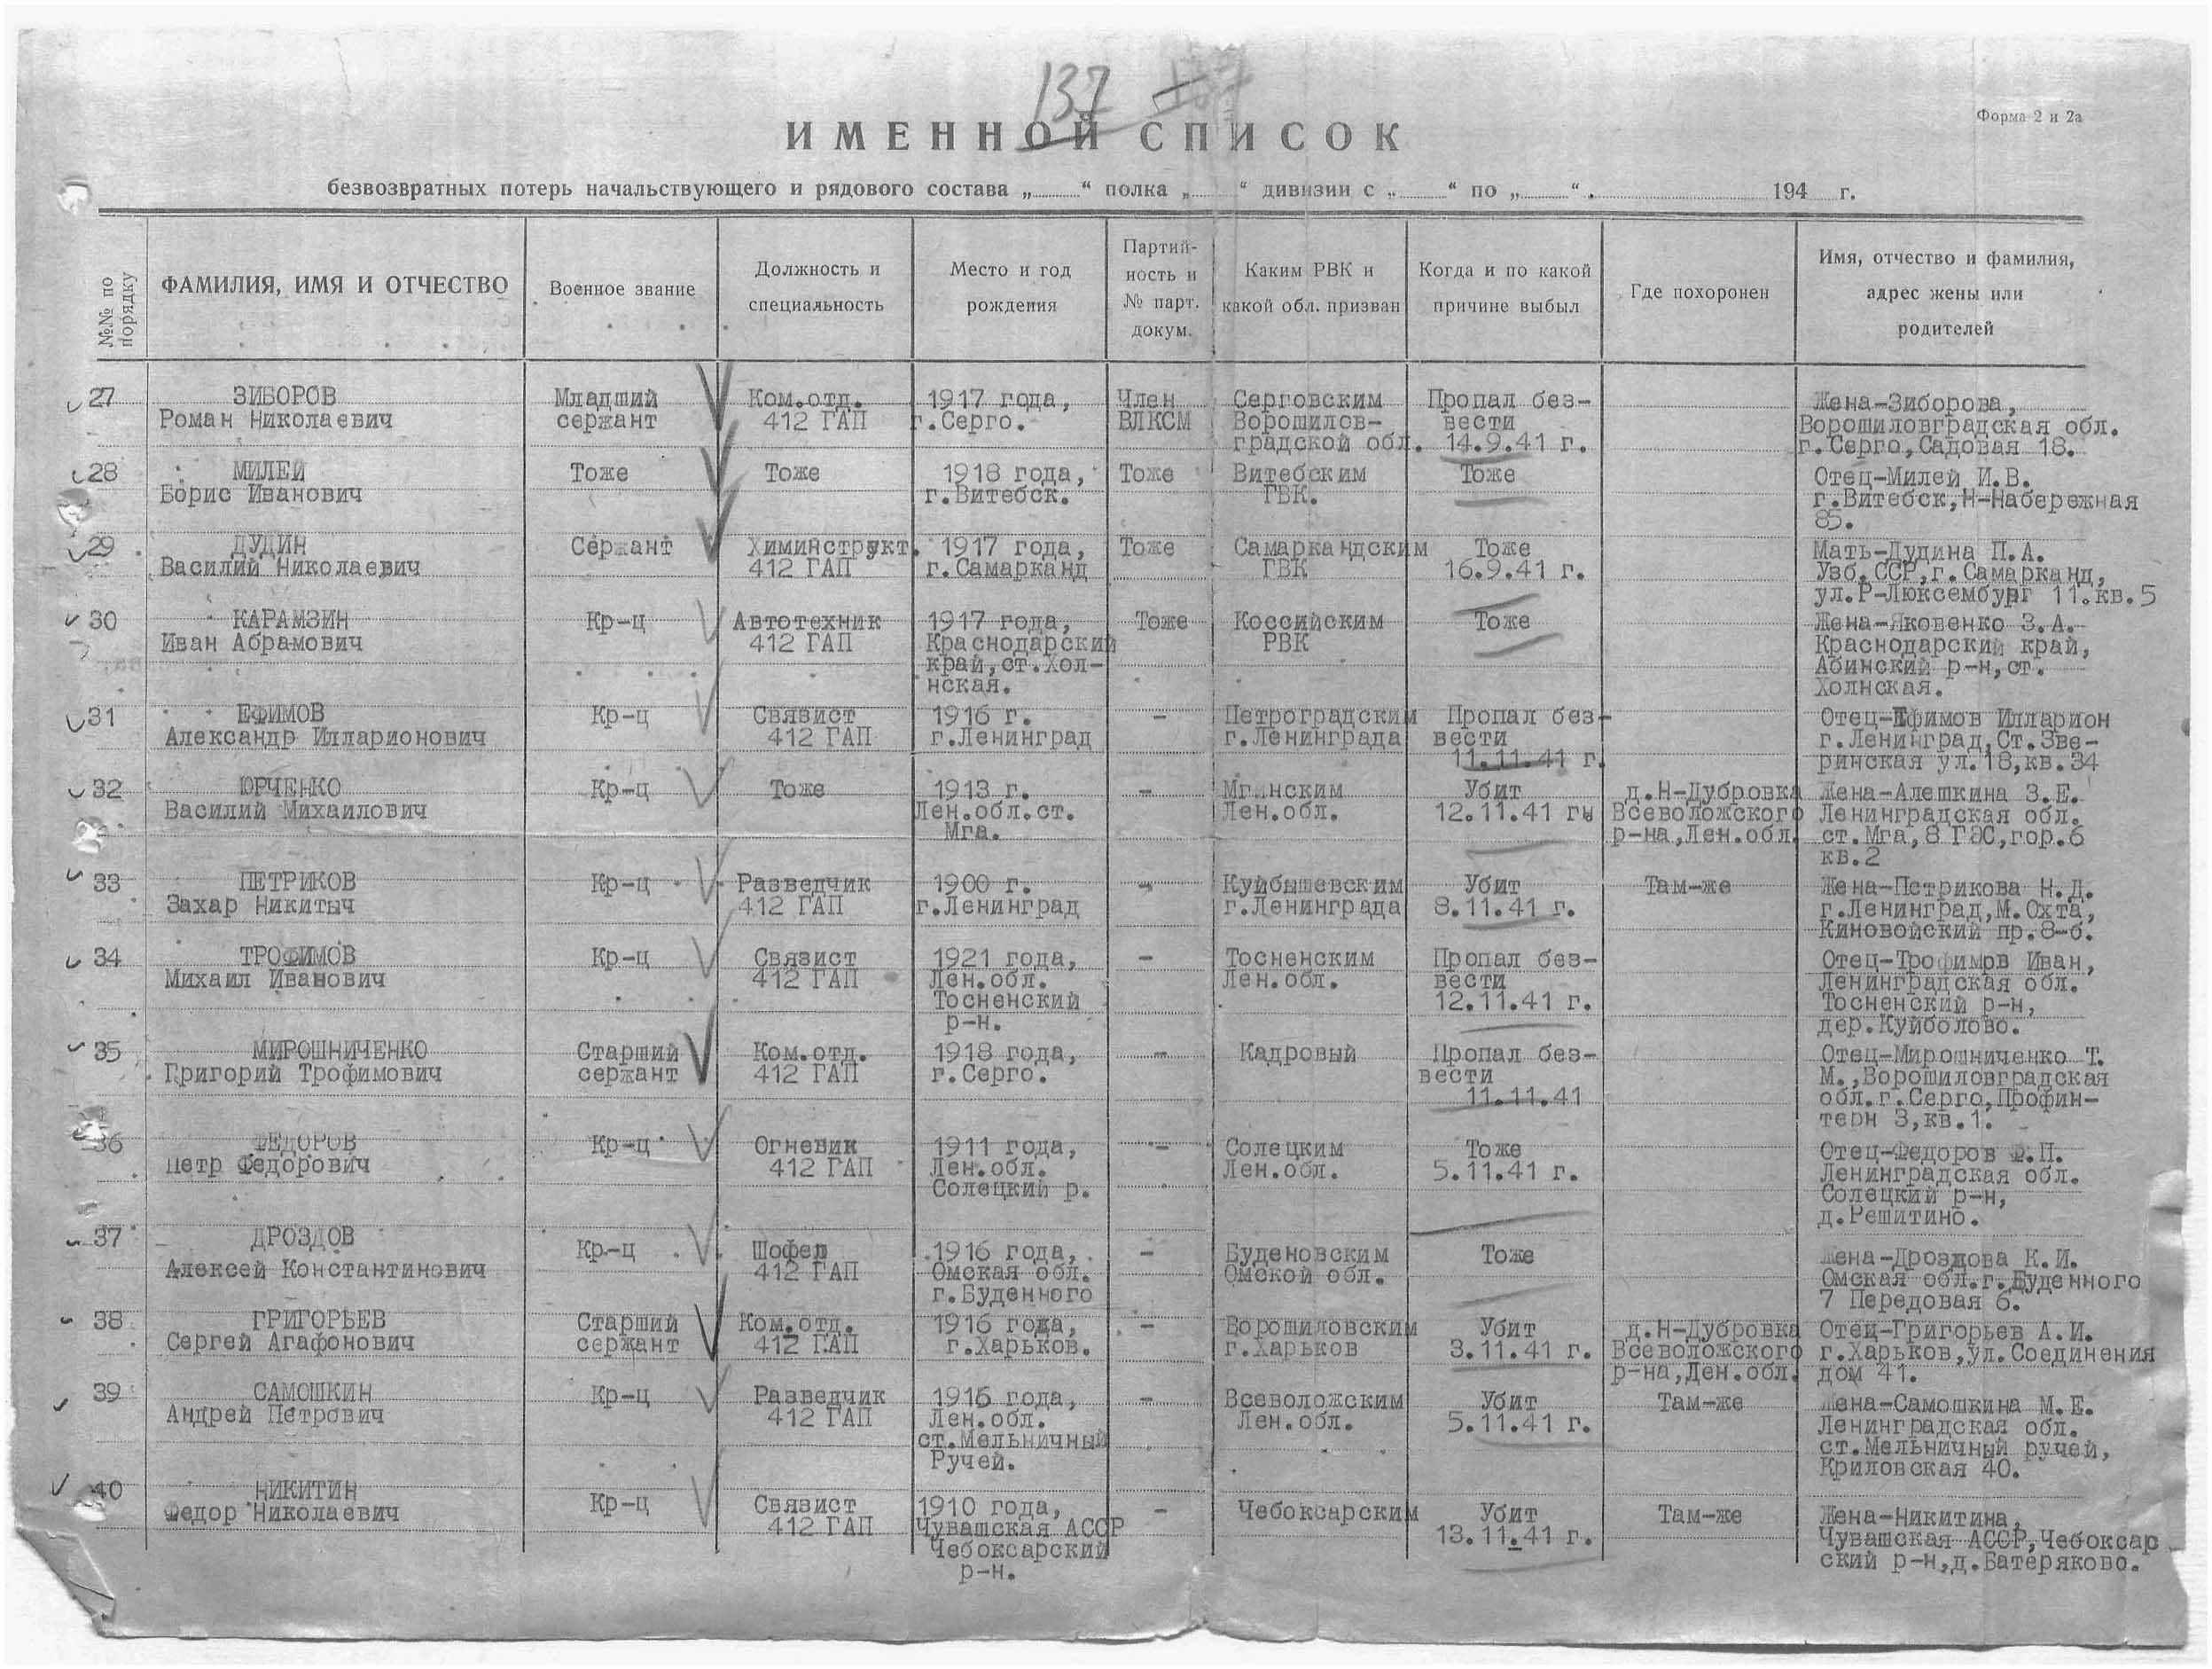 137
Форма 2 и 2а
ИМЕННОЙ СПИСОК
безвозвратных потерь начальствующего и рядового состава „ “ полка „ “ дивизии с „ “ по „ “. 194 г.
№№ по порядку
ФАМИЛИЯ, ИМЯ И ОТЧЕСТВО
Военное звание
Должность и
специальность
Место и год
рождения
Партий-
ность и
№ парт.
докум.
Каким РВК и
какой обл. призван
Когда и по какой
причине выбыл
Где похоронен
Имя, отчество и фамилия,
адрес жены или
родителей
27 ЗИБОРОВ Младший Ком.отд. 1917 года, Член Серговским Пропал без- Жена-Зиборова,
Роман Николаевич сержант 412 ГАП г.Серго. ВЛКСМ Ворошилов- вести Ворошиловградская обл.
градской обл. 14.9.41 г. г.Серго,Садовая 18.
28 МИЛЕЙ Тоже Тоже 1918 года, Тоже Витебским Тоже Отец-Милей И.В.
Борис Иванович г.Витебск. ГВК. г.Витебск,Н-Набережная
85.
29 ДУДИН Сержант Химинструкт. 1917 года, Тоже Самаркандским Тоже Мать-Дудина П.А.
Василий Николаевич 412 ГАП г.Самарканд ГВК 16.9.41 г. Узб.ССР,г.Самарканд,
ул.Р-Люксембург 11.кв.5
30 КАРАМЗИН Кр-ц Автотехник 1917 года, Тоже Коссийским Тоже Жена-Яковенко З.А.
Иван Абрамович 412 ГАП Краснодарский РВК Краснодарский край,
край,ст.Хол- Абинский р-н,ст.
нская. Холнская.
31 ЕФИМОВ Кр-ц Связист 1916 г. - Петроградским Пропал без- Отец-Ефимов Илларион
Александр Илларионович 412 ГАП г.Ленинград г.Ленинграда вести г.Ленинград,Ст.Зве-
11.11.41 г. ринская ул.18,кв.34
32 ЮРЧЕНКО Кр-ц Тоже 1913 г. - Мгинским Убит д.Н-Дубровка Жена-Алешкина З.Е.
Василий Михаилович Лен.обл.ст. Лен.обл. 12.11.41 гы Всеволожского Ленинградская обл.
Мга. р-на,Лен.обл. ст.Мга,8 ГЭС,гор.6
кв.2
33 ПЕТРИКОВ Кр-ц Разведчик 1900 г. - Куйбышевским Убит Там-же Жена-Петрикова Н.Д.
Захар Никитыч 412 ГАП г.Ленинград г.Ленинграда 8.11.41 г. г.Ленинград,М.Охта,
Киновойский пр.8-б.
34 ТРОФИМОВ Кр-ц Связист 1921 года, - Тосненским Пропал без- Отец-Трофимов Иван,
Михаил Иванович 412 ГАП Лен.обл. Лен.обл. вести Ленинградская обл.
Тосненский 12.11.41 г. Тосненский р-н,
р-н. дер.Куйболово.
35 МИРОШНИЧЕНКО Старший Ком.отд. 1918 года, - Кадровый Пропал без- Отец-Мирошниченко Т.
Григорий Трофимович сержант 412 ГАП г.Серго. вести М.,Ворошиловградская
11.11.41 обл.г.Серго,Профин-
терн 3,кв.1.
36 ФЕДОРОВ Кр-ц Огневик 1911 года, - Солецким Тоже Отец-Федоров Ф.П.
Петр Федорович 412 ГАП Лен.обл. Лен.обл. 5.11.41 г. Ленинградская обл.
Солецкий р. Солецкий р-н,
д.Решитино.
37 ДРОЗДОВ Кр-ц Шофер 1916 года, - Буденовским Тоже Жена-Дроздова К.И.
Алексей Константинович 412 ГАП Омская обл. Омской обл. Омская обл.г.Буденного
г.Буденного 7 Передовая 6.
38 ГРИГОРЬЕВ Старший Ком.отд. 1916 года, - Ворошиловским Убит д.Н-Дубровка Отец-Григорьев А.И.
Сергей Агафонович сержант 412 ГАП г.Харьков. г.Харьков 3.11.41 г. Всеволожского г.Харьков,ул.Соединения
р-на,Лен.обл. дом 41.
39 САМОШКИН Кр-ц Разведчик 1916 года, - Всеволожским Убит Там-же Жена-Самошкина М.Е.
Андрей Петрович 412 ГАП Лен.обл. Лен.обл. 5.11.41 г. Ленинградская обл.
ст.Мельничный ст.Мельничный ручей,
Ручей. Криловская 40.
40 НИКИТИН Кр-ц Связист 1910 года, - Чебоксарским Убит Там-же Жена-Никитина,
Федор Николаевич 412 ГАП Чувашская АССР 13.11.41 г. Чувашская АССР,Чебоксар
Чебоксарский ский р-н,д.Батеряково.
р-н.